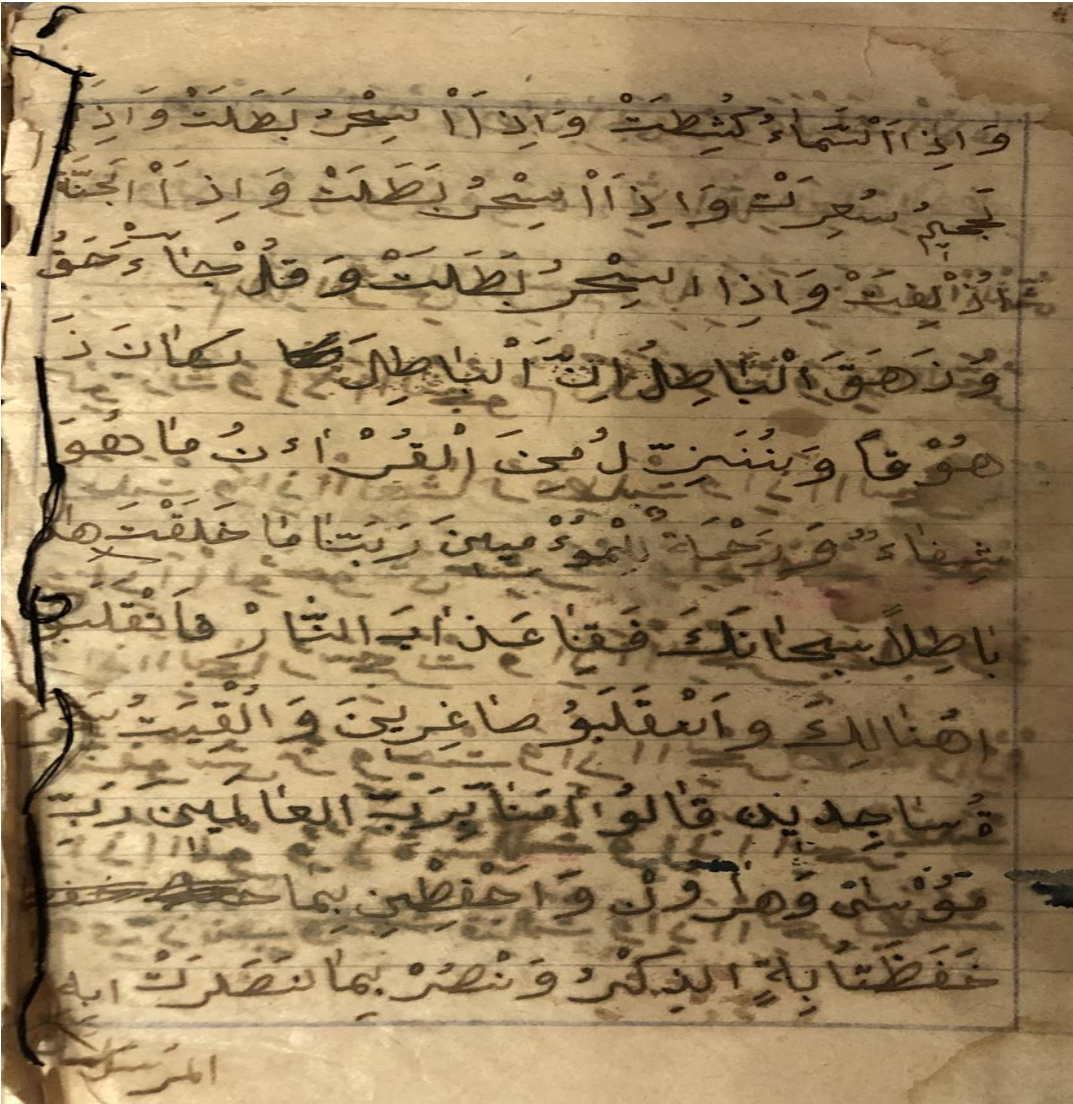 وَاِذَاالسَّمَاءُ كُشِطَتْ وَاِذَاْ اسِحْرُ بَطَلَتْ وَاِذَ
جَحِيْمُ سُعِرَتْ وَاِذَاْ اسِحْرُ بَطَلَتْ وَاِذَاْ الجَنَّةُ
اُذْلِفَتْ وَاِذَا اسِحْرُ بَطَلَتْ وَقُلْ جَاءَ حَقُ
وَذَهَقَ الْبَاطِلُ اِنَّ الْبَاطِلَ كَانَ ذَ
هُوْقاً وَ بنُنَزِّ لُ مِنَ الْقُرْاءنُ مَا هُوَ
شِفَاء وَ رَحْمَة لِلْمُوءْمِينَ رَبَّنَا مَا خَلَقْتَ هَا
بَاطِلاً سبحَانَكَ فَقِنَا عَذَابَ النَّارْ فَانْقَلَبُو
اهُنَالِكَ وَانْقَلَبُوْ صَاغِرِينَ وَالْقِيَتُ
ةُ سَاجِدِينَ قَالُوْا اٰمَنَا بِرَبِّ العَالَمِينَ رَبِّ
مُوْسَى وَهَرُونْ وَاحْفِظْنِ بِمَا
حَفَظَتَا بِهِ الذِكْرُ وَنْصُرْ بِمَا نَصَرَتْ ابه
المرسل